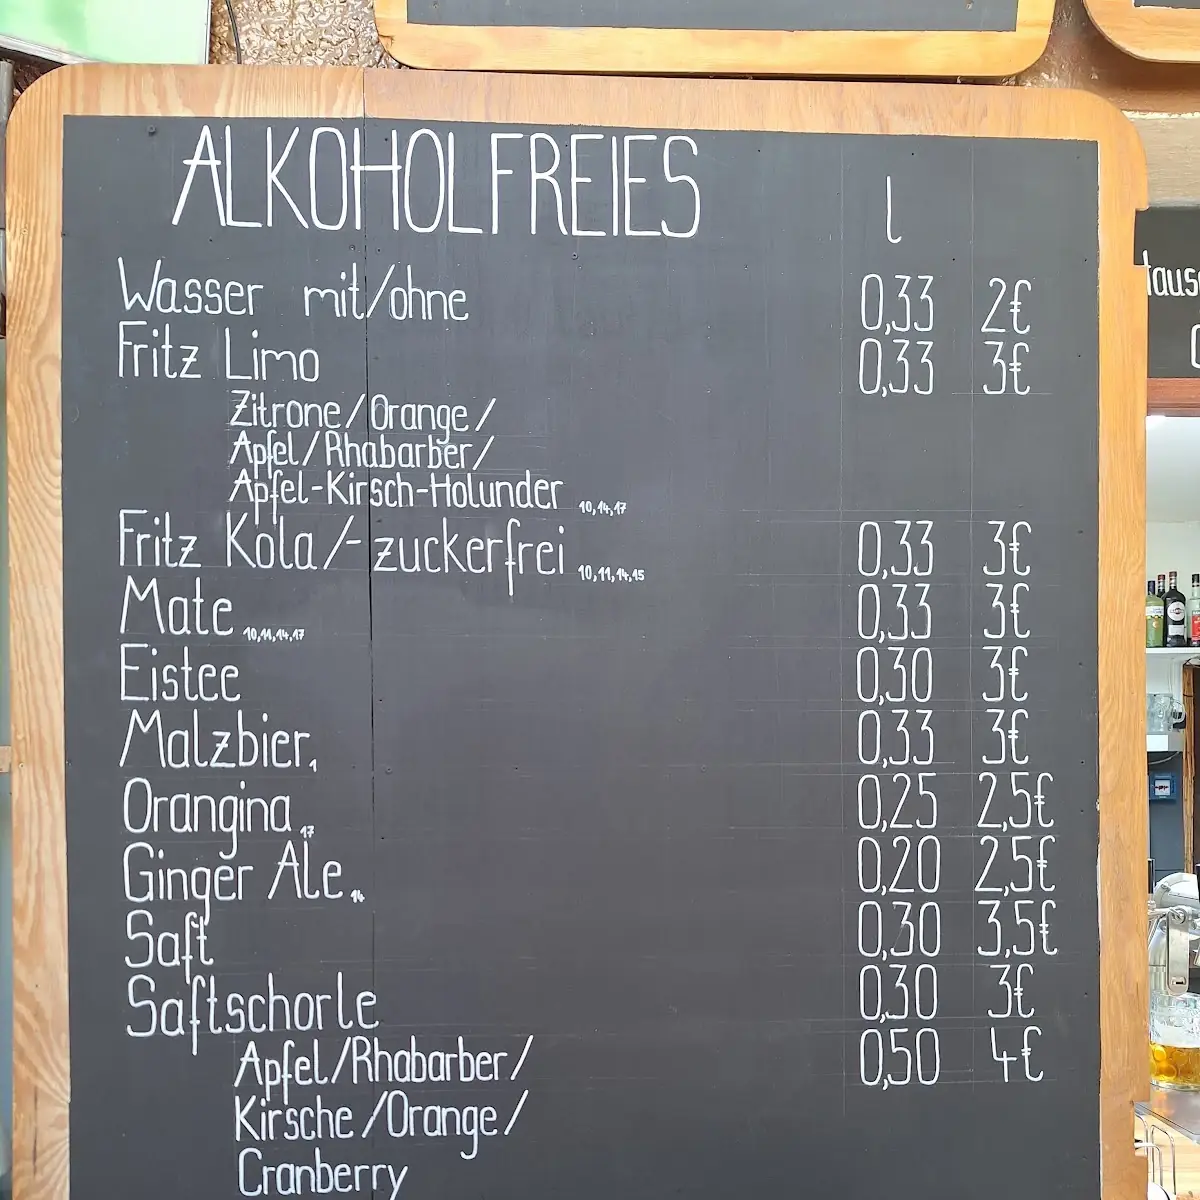 ALKOHOLFREIES l
Wasser mit/ohne 0,33 2€
Fritz Limo 0,33 3€
Zitrone/Orange/
Apfel/Rhabarber/
Apfel-Kirsch-Holunder 10,14,17
Fritz Kola/-zuckerfrei 10,11,14,15 0,33 3€
Mate 10,11,14,17 0,33 3€
Eistee 0,30 3€
Malzbier 1 0,33 3€
Orangina 17 0,25 2,5€
Ginger Ale 14 0,20 2,5€
Saft 0,30 3,5€
Saftschorle 0,30 3€
0,50 4€
Apfel/Rhabarber/
Kirsche/Orange/
Cranberry